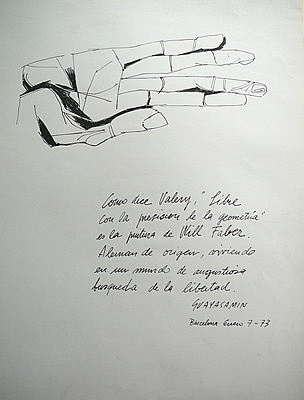 Como dice Valery, "Libre
con la presision de la geometría"
es la pintura de Will Faber.
Aleman de origen, viviendo
en un mundo de angustiosa
busqueda de la libertad.
GUAYASAMIN
Barcelona Enero 7-73